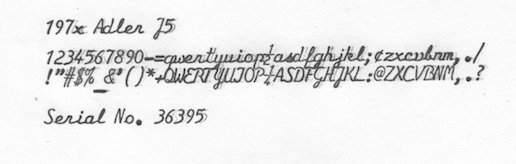 197x Adler J5
1234567890-=qwertyuiop½asdfghjkl;¢zxcvbnm,./
!"#$%_&'()*+QWERTYUIOP¼ASDFGHJKL:@ZXCVBNM,.?
Serial No. 36395